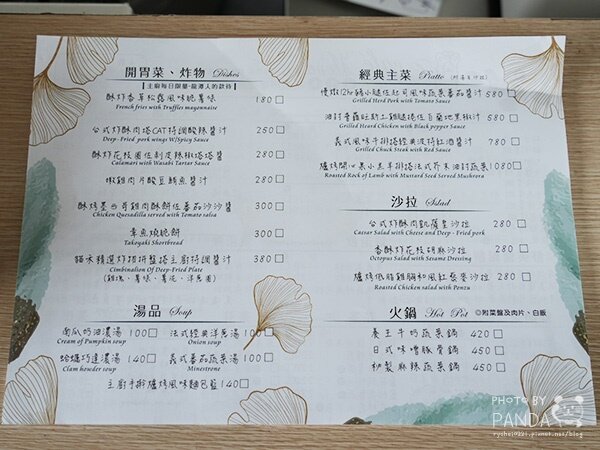 開胃菜、炸物 Dishes
【主廚每日限量.龍潭人的款待】
酥炸香草松露風味脆薯條 180
French fries with Truffles mayonnaise
台式炸酥肉塔CAT特調酸辣醬汁 250
Deep-Fried pork wings W/Spicy Sauce
酥炸花枝圈佐剝皮辣椒塔塔醬 280
Calamari with Wasabi Tartar Sauce
嫩雞肉片酸豆鮪魚醬汁 280
酥烤墨西哥雞肉酥餅佐番茄莎莎醬 300
Chicken Quesadilla served with Tomato salsa
章魚燒脆餅 300
Takoyaki Shortbread
貓本精選炸物拼盤塔主廚特調醬汁 380
Cimbinalion Of Deep-Fried Plate
(雞塊、薯條、薯花、洋蔥圈)
湯品 Soup
南瓜奶油濃湯 100
Cream of Pumpkin soup
法式經典洋蔥湯 100
Onion soup
蛤蠣巧達濃湯 140
Clam howder soup
義式番茄蔬菜湯 140
Minestrone
主廚手排爐烤風味麵包籃 140
經典主菜 Piatto (附湯&沙拉)
慢燉12hr豬小腿佐紅司風味蔬菜番茄醬汁 580
Grilled Herd Pork with Tomato Sauce
油封雞腿 白蘭地黑椒汁 580
Grilled Heard Chicken with Black pepper Sauce
義式風味牛排搭經典波特紅酒醬汁 780
Grilled Chuck Steak with Red Sauce
爐烤開心果小羔羊排搭法式芥末油封蔬菜 1080
Roasted Rock of Lamb with Mustard Seed Served Mushrora
沙拉 Salad
台式炸酥肉凱薩皇沙拉 280
Caesar Salad with Cheese and Deep - Fried pork
香酥炸花枝胡麻沙拉 280
Octopus Salad with Sesame Dressing
爐烤低脂雞胸和風紅藜麥沙拉 280
Roasted Chicken salad with Penzu
火鍋 Hot Pot ◎附菜盤及肉片、白飯
養王牛奶蔬菜鍋 420
日式味噌豚骨鍋 450
秘製麻辣蔬菜鍋 450
PHOTO BY
PANDA